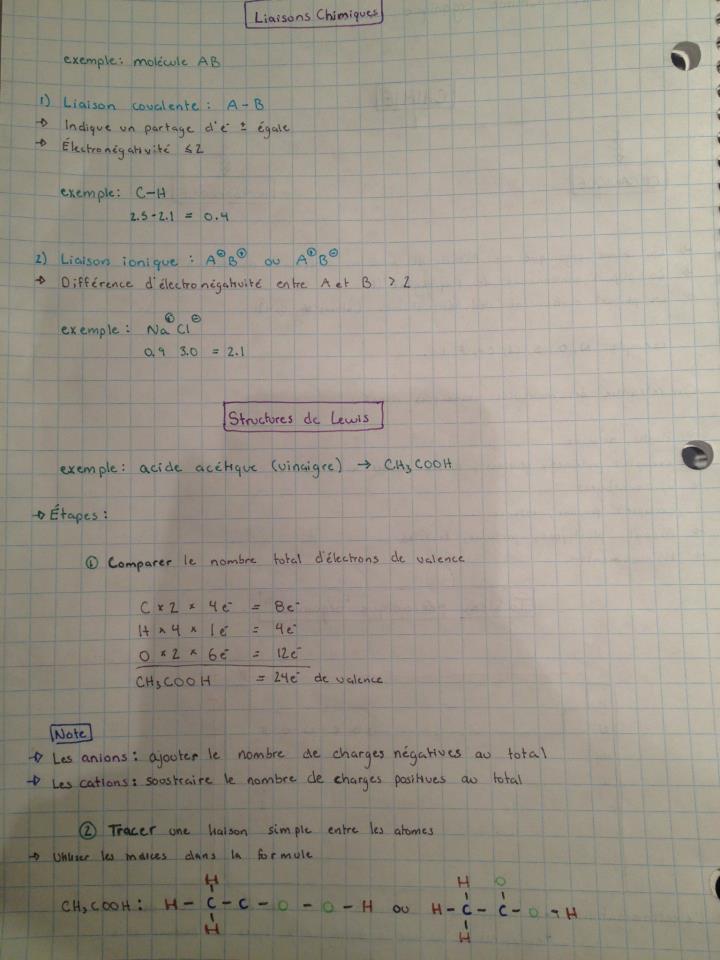 Liaisons Chimiques
exemple: molécule AB
1) Liaison covalente : A-B
→ Indique un partage d'e⁻ ± égale
→ Électronégativité ≤ 2
exemple: C-H
2.5-2.1 = 0.4
2) Liaison ionique : A⊖B⊕ ou A⊕B⊖
→ Différence d'électronégativité entre A et B > 2
exemple : Na⊕Cl⊖
0.9 3.0 = 2.1
Structures de Lewis
exemple: acide acétique (vinaigre) → CH₃COOH
→ Étapes :
① Comparer le nombre total d'électrons de valence
C × 2 × 4e⁻ = 8e⁻
H × 4 × 1e⁻ = 4e⁻
O × 2 × 6e⁻ = 12e⁻
CH₃COOH = 24e⁻ de valence
Note
→ Les anions : ajouter le nombre de charges négatives au total
→ Les cations : soustraire le nombre de charges positives au total
② Tracer une liaison simple entre les atomes
→ Utiliser les indices dans la formule
H H O
CH₃COOH : H - C - C - O - O - H ou H - C - C - O - H
H H